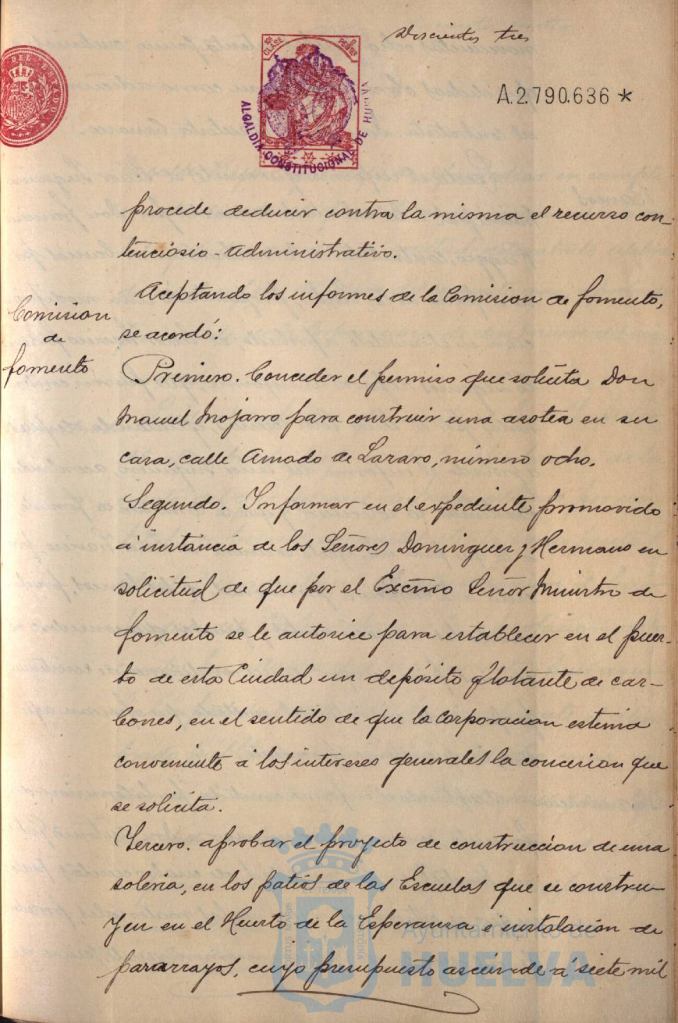 Doscientos tres
A.2.790.636 *
ALCALDIA CONSTITUCIONAL DE HUELVA
procede deducir contra la misma el recurso con-
tenciosio-administrativo.
Comision
de
fomento
Aceptando los informes de la Comision de fomento,
se acordó:
Primero. Conceder el permiso que solicita Don
Manuel Mojarro para construir una asotea en su
casa, calle Amado de Lazaro, número ocho.
Segundo. Informar en el expediente promovido
á instancia de los Señores Dominguez y Hermano en
solicitud de que por el Excmo Señor Ministro de
fomento se le autorice para establecer en el puer-
to de esta Ciudad un depósito flotante de car-
bones, en el sentido de que la Corporacion estima
conveniente á los intereses generales la concesion que
se solicita.
Tercero. aprobar el proyecto de construccion de una
soleria, en los patios de las Escuelas que se constru-
yen en el Huerto de la Esperanza é instalación de
pararrayos, cuyo presupuesto asciende á siete mil
Ayuntamiento de
HUELVA